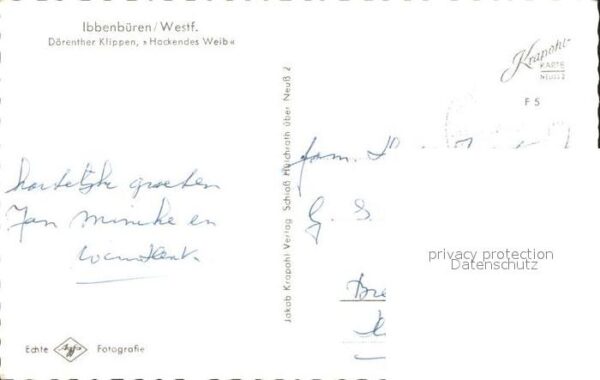 Ibbenbüren/Westf.
Dörenther Klippen, »Hockendes Weib«
Krapohl-
KARTE
NEUSS 2
F 5
hartelijke groeten
Jan Mineke en
fam.
G. S
Jakob Krapohl Verlag Schloß Hülchrath über Neuß 2
privacy protection
Datenschutz
Echte Agfa Fotografie